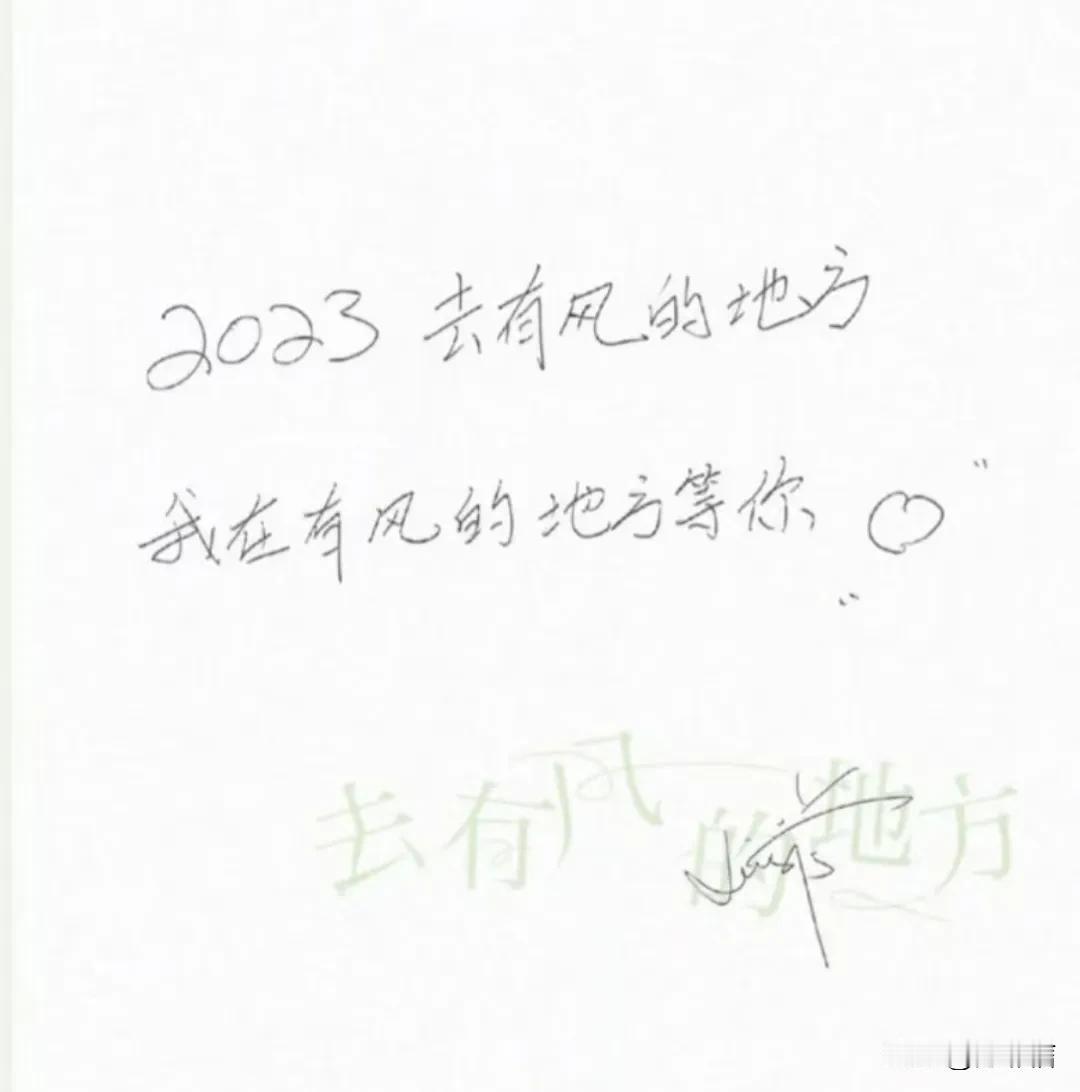 2023 去有风的地方
我在有风的地方等你
去有风的地方